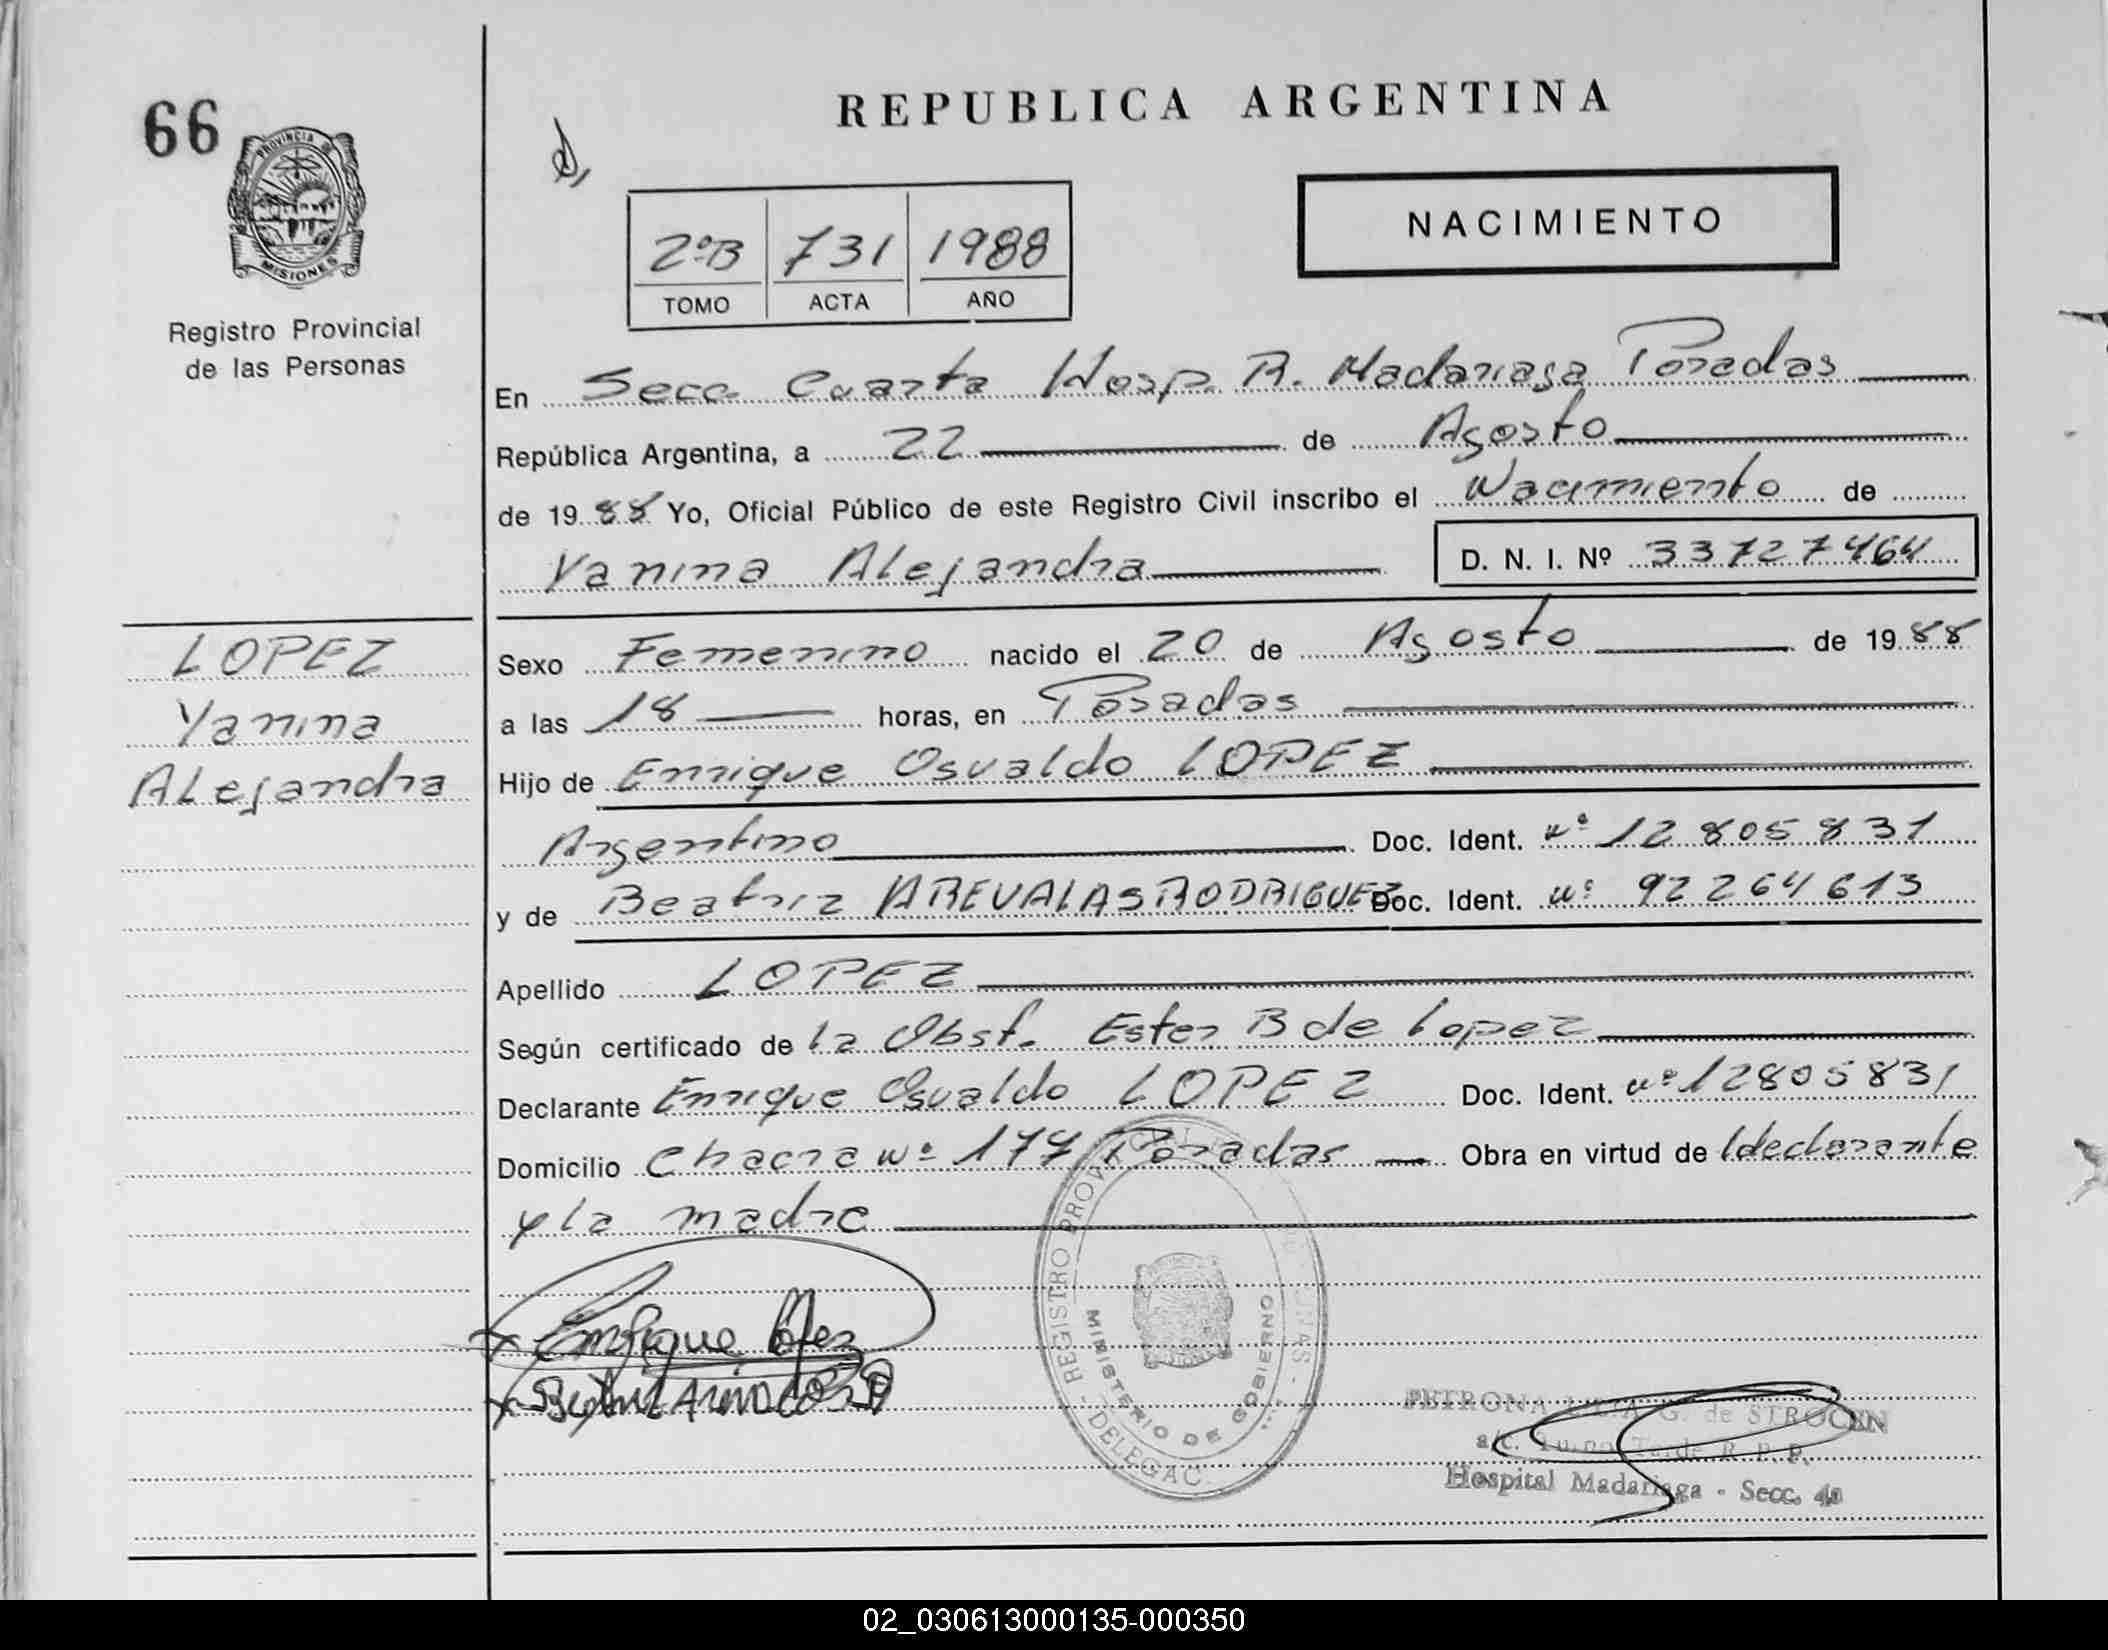 66
PROVINCIA DE
MISIONES
Registro Provincial
de las Personas
REPUBLICA ARGENTINA
2ºB 731 1988
TOMO ACTA AÑO
NACIMIENTO
En Secc Cuarta Hosp. R. Madariaga Posadas
República Argentina, a 22 de Agosto
de 1988 Yo, Oficial Público de este Registro Civil inscribo el Nacimiento de
Yanina Alejandra D. N. I. Nº 33727464
LOPEZ
Yanina
Alejandra
Sexo Femenino nacido el 20 de Agosto de 1988
a las 18 horas, en Posadas
Hijo de Enrique Osvaldo LOPEZ
Argentino Doc. Ident. nº 12805831
y de Beatriz AREVALAS RODRIGUEZ Doc. Ident. nº 92264613
Apellido LOPEZ
Según certificado de la Obst. Ester B de Lopez
Declarante Enrique Osvaldo LOPEZ Doc. Ident. nº 12805831
Domicilio Chacra Nº 177 Posadas Obra en virtud de ldeclarante
y la madre
Enrique Lopez
REGISTRO PROV
MINISTERIO DE GOBIERNO
DELEGAC.
PETRONA G. de STROCEN
a/c. Turno Tarde R. P. P.
Hospital Madariaga - Secc. 4a
02_030613000135-000350